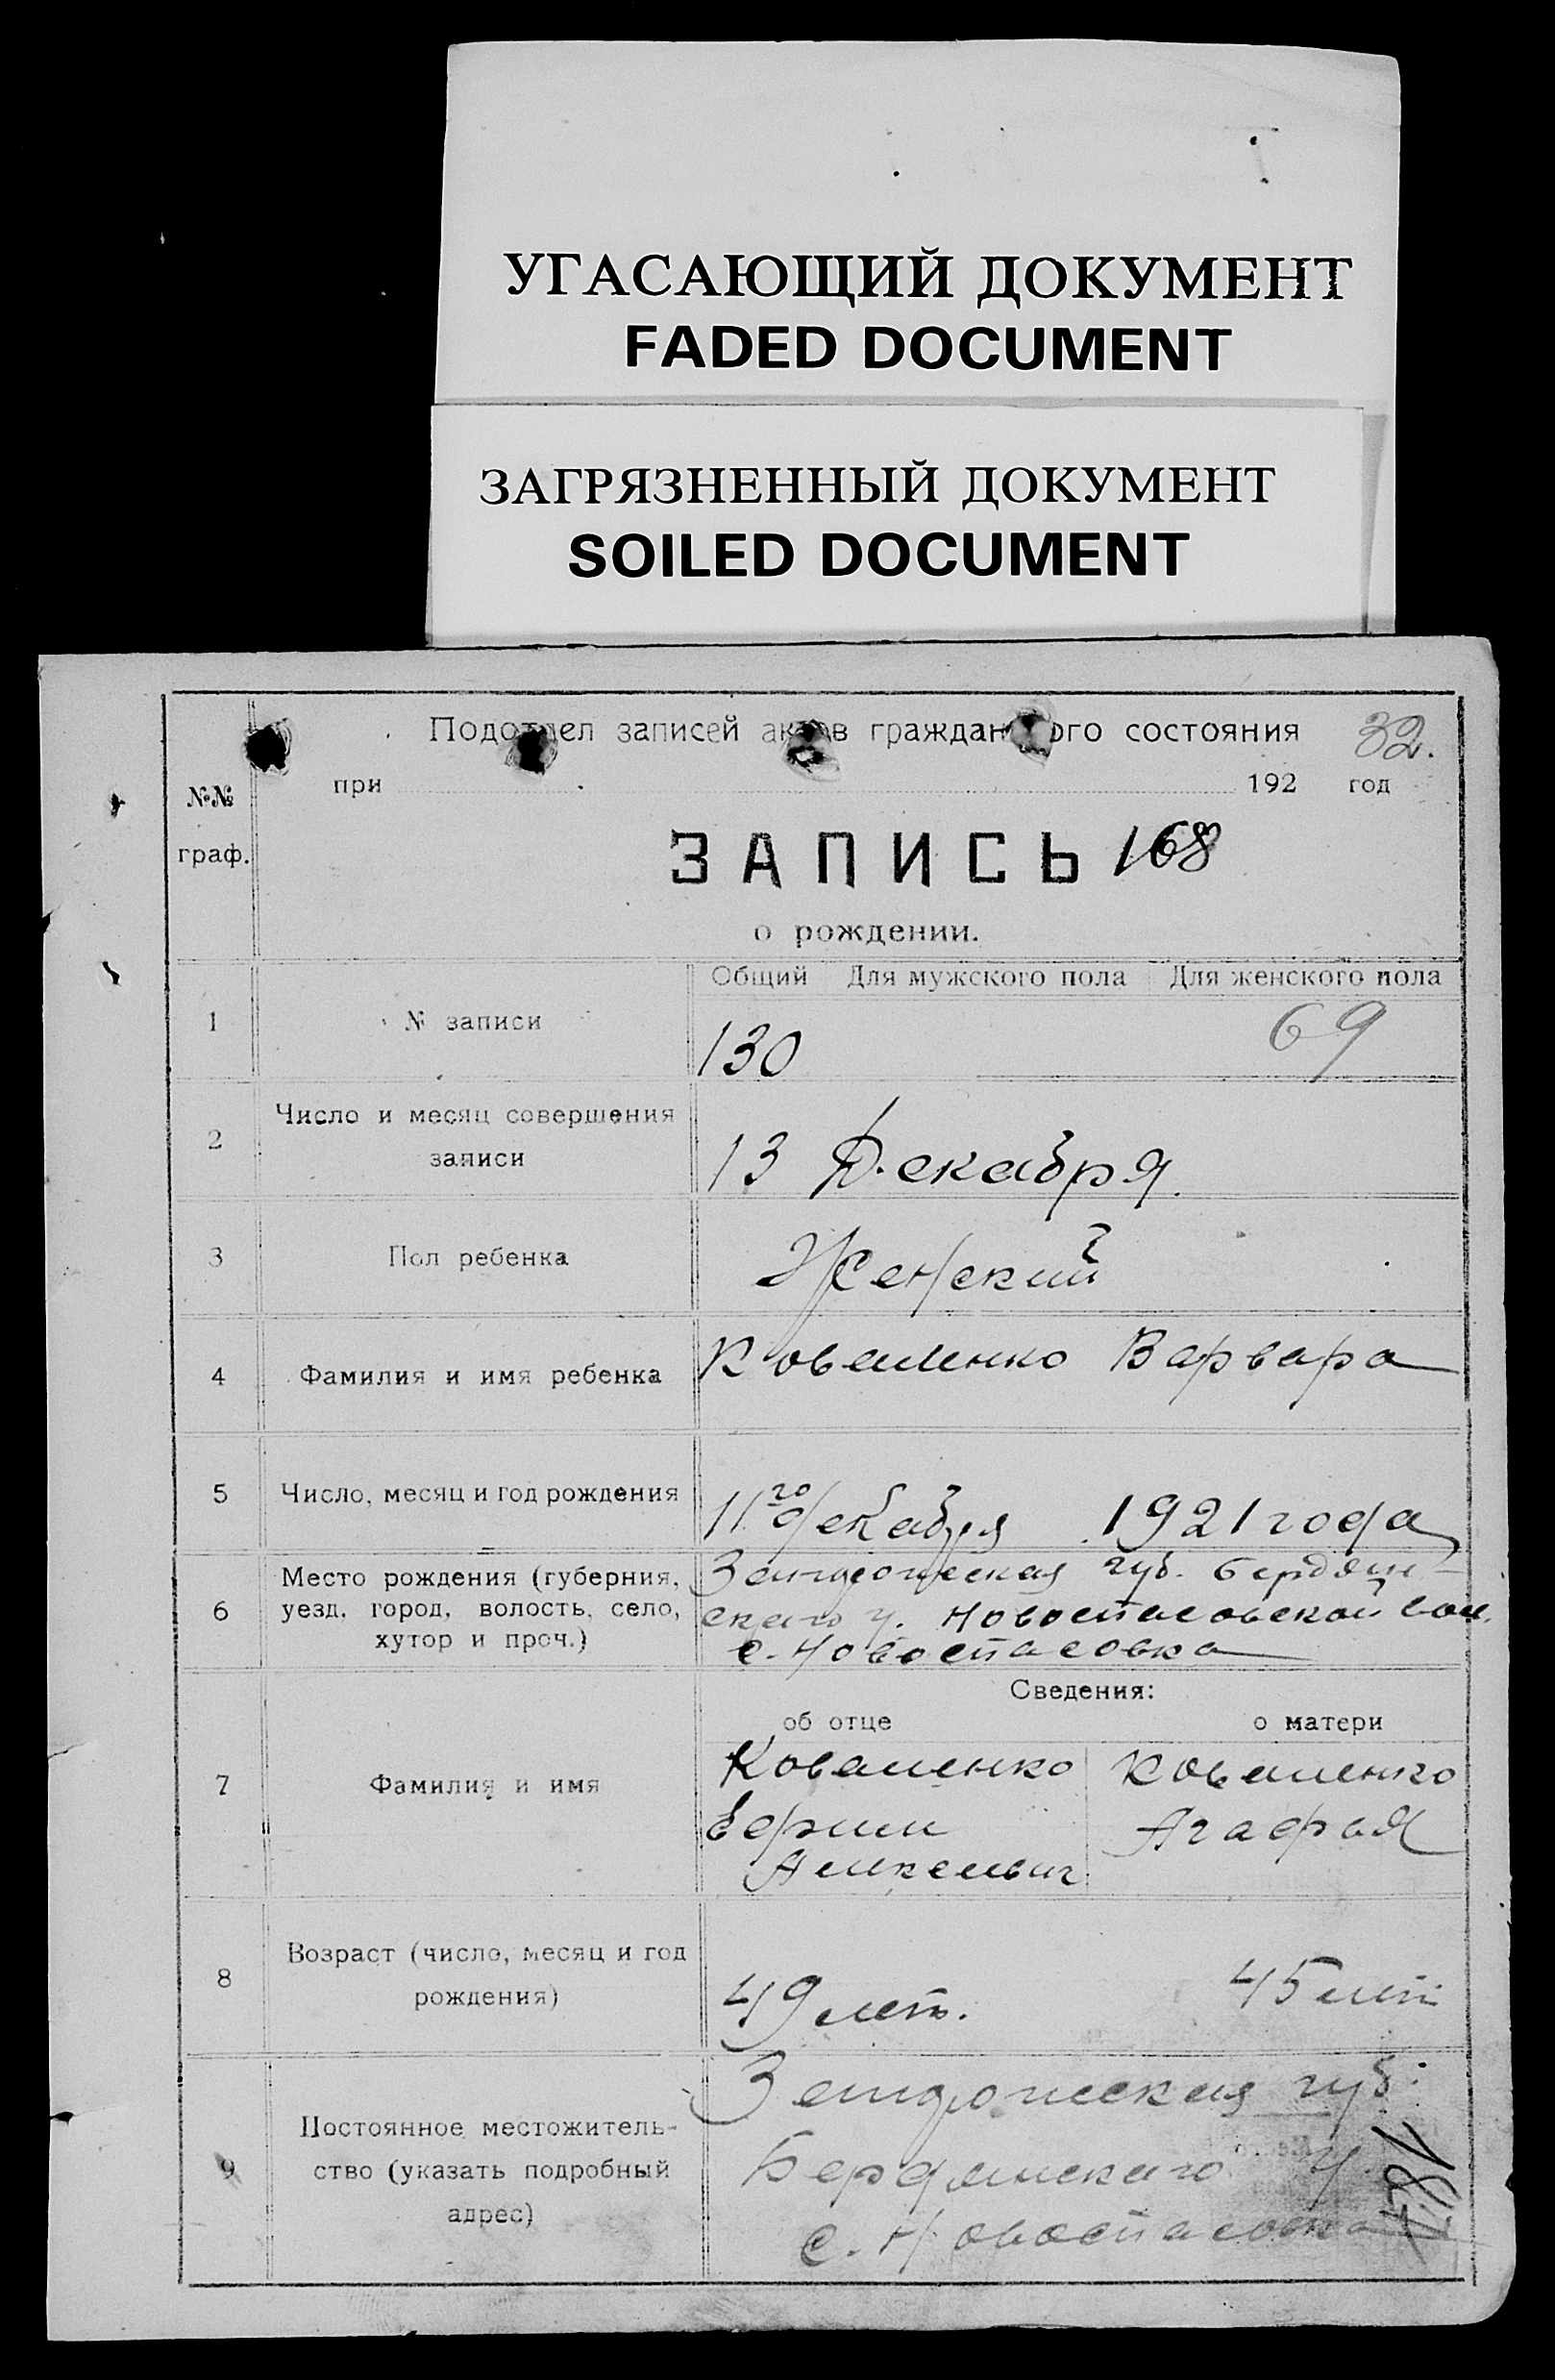 УГАСАЮЩИЙ ДОКУМЕНТ
FADED DOCUMENT
ЗАГРЯЗНЕННЫЙ ДОКУМЕНТ
SOILED DOCUMENT
Подотдел записей актов гражданского состояния 32.
при 192 год
№№
граф.
ЗАПИСЬ 168
о рождении.
Общий Для мужского пола Для женского пола
1 № записи 130 69
2 Число и месяц совершения
записи
13 Декабря.
3 Пол ребенка Женский
4 Фамилия и имя ребенка Коваленко Варвара
5 Число, месяц и год рождения 11го декабря 1921 года
6 Место рождения (губерния,
уезд, город, волость, село,
хутор и проч.)
губ. Бердян-
ского у. Новоспасовской вол.
с. Новоспасовка
Сведения:
об отце о матери
7 Фамилия и имя
Коваленко Коваленко
Агафья
8 Возраст (число, месяц и год
рождения)
49 лет. 45 лет
9 Постоянное местожитель-
ство (указать подробный
адрес)
губ.
Бердянского у.
с. Новоспасовка